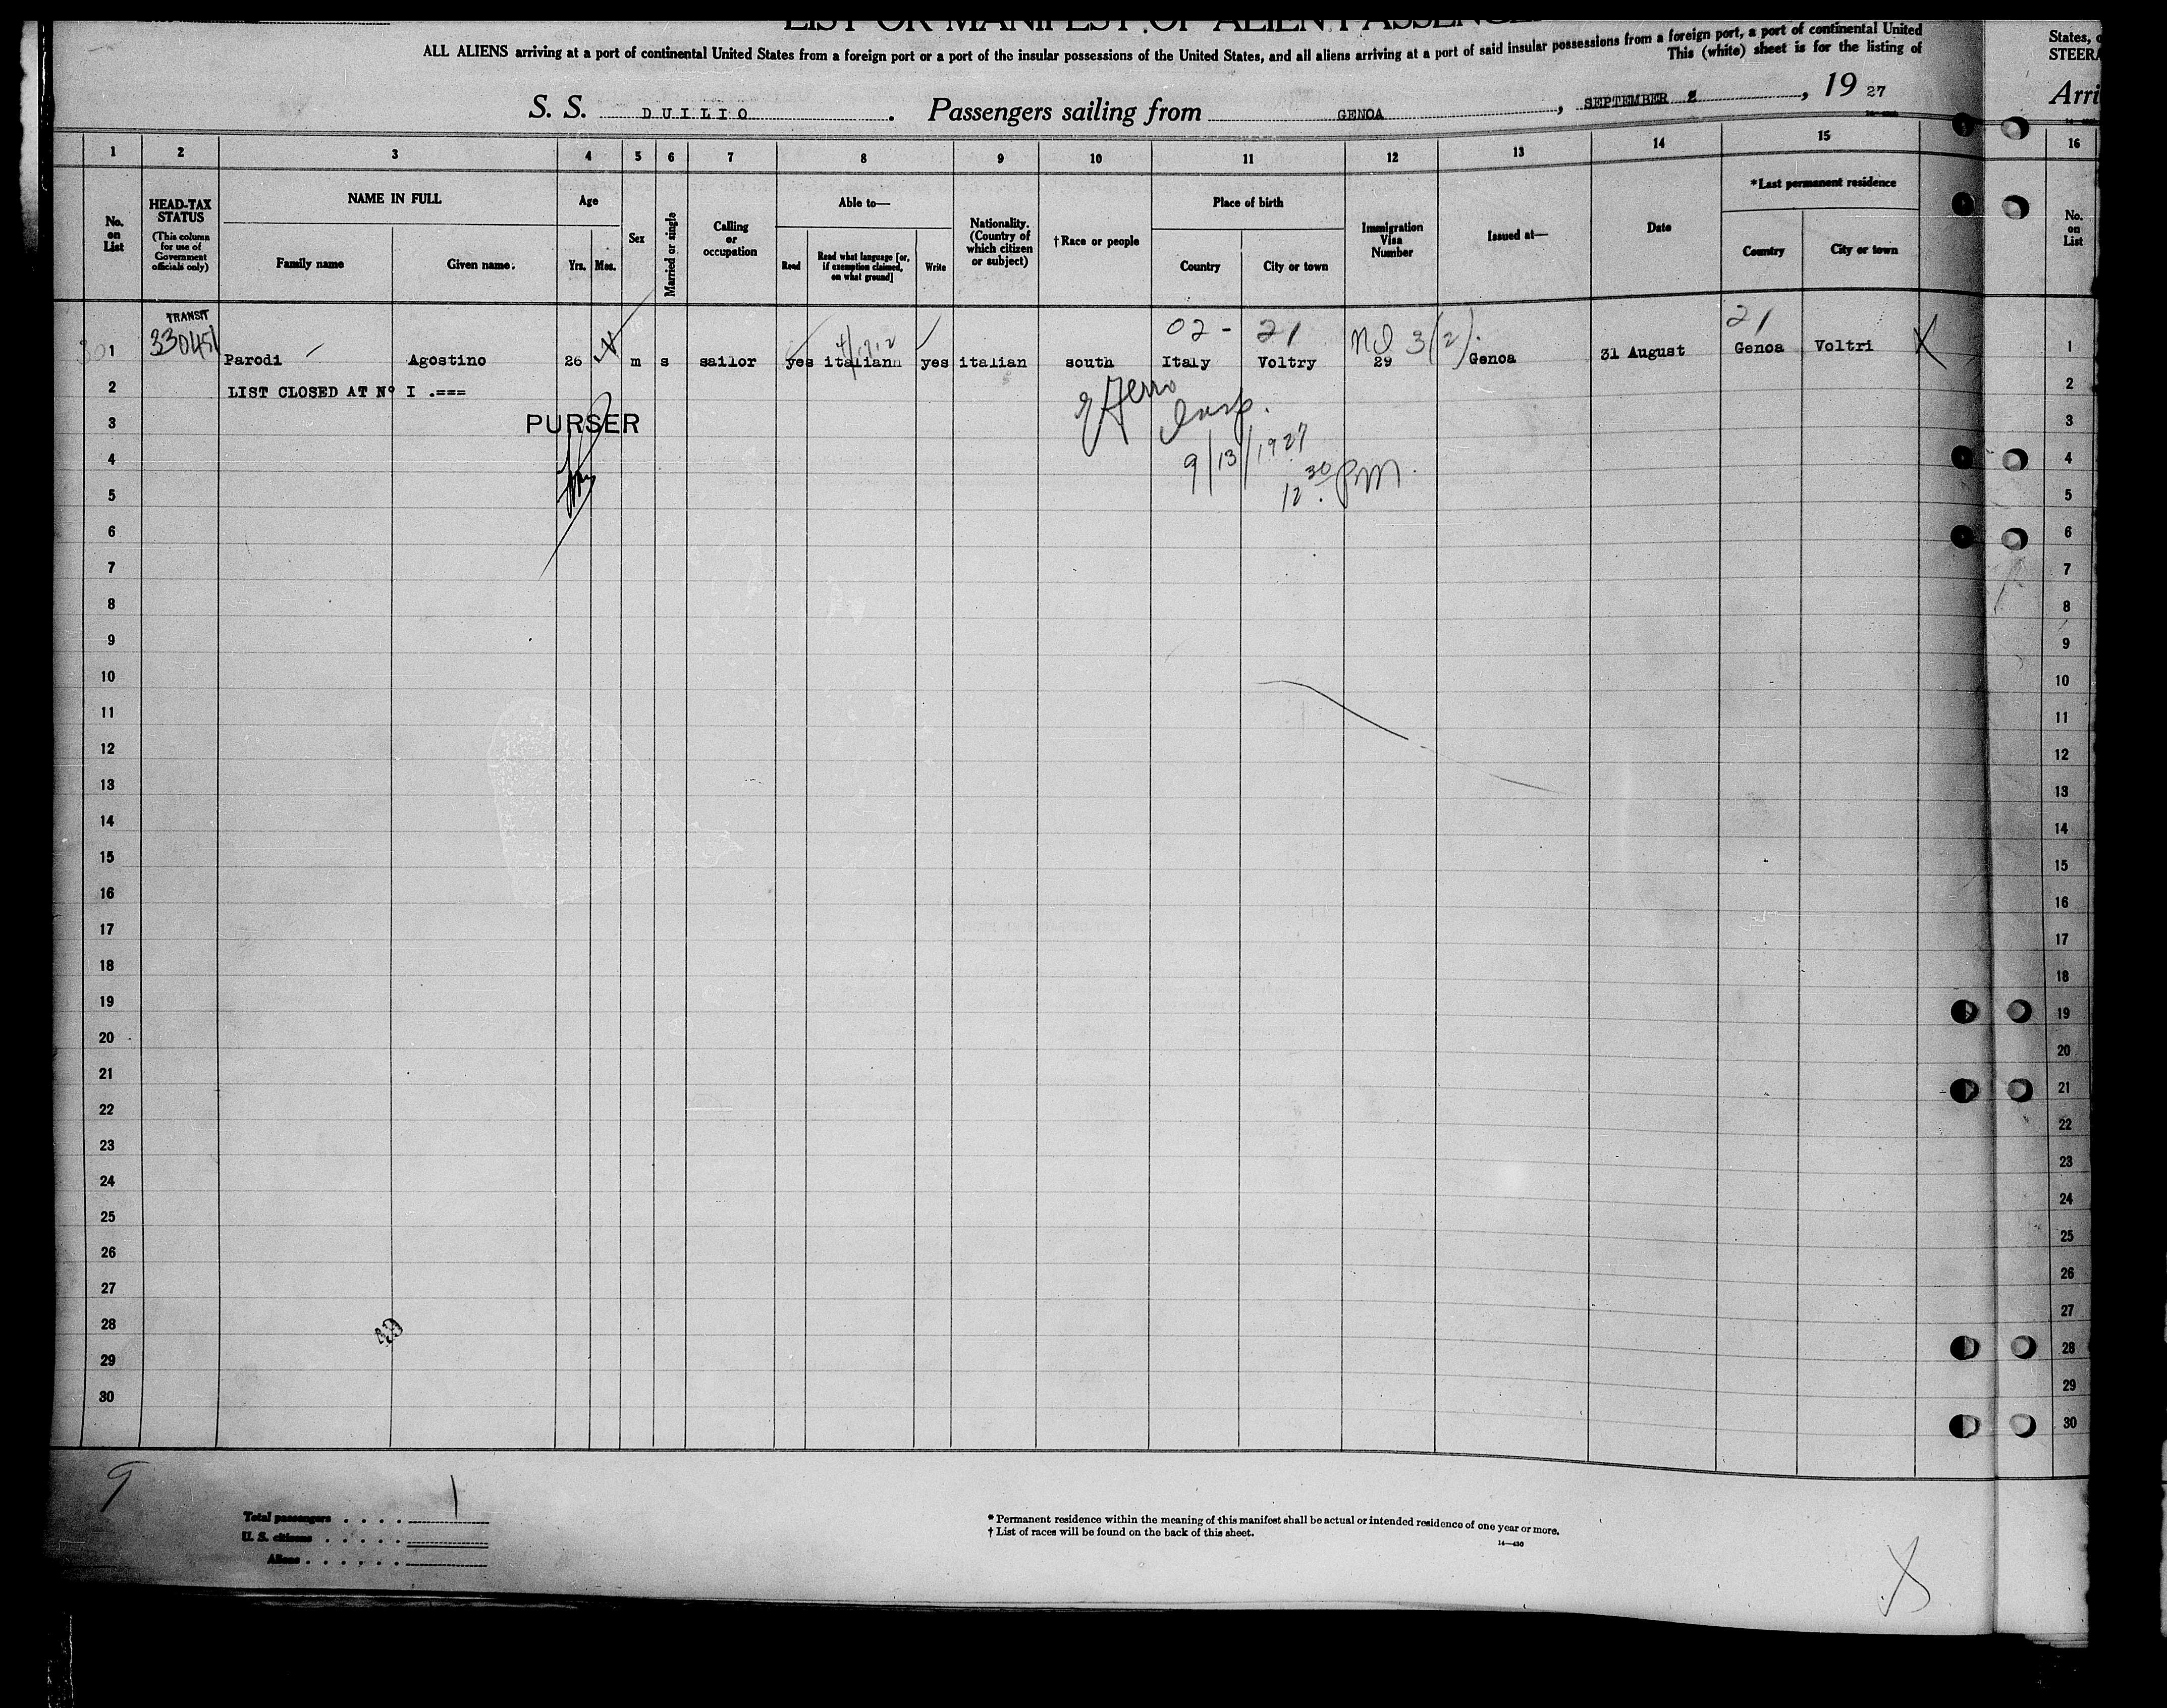 LIST OR MANIFEST OF ALIEN PASSENGE
ALL ALIENS arriving at a port of continental United States from a foreign port or a port of the insular possessions of the United States, and all aliens arriving at a port of said insular possessions from a foreign port, a port of continental United
This (white) sheet is for the listing of
States, o
STEERA
S. S. DUILIO . Passengers sailing from GENOA , SEPTEMBER 2 , 19 27
Arri
1 2 3 4 5 6 7 8 9 10 11 12 13 14 15 16
No. on List
HEAD-TAX STATUS
(This column for use of Government officials only)
NAME IN FULL
Family name
Given name
Age
Yrs. Mos.
Sex
Married or single
Calling or occupation
Able to—
Read
Read what language [or, if exemption claimed, on what ground]
Write
Nationality. (Country of which citizen or subject)
†Race or people
Place of birth
Country
City or town
Immigration Visa Number
Issued at—
Date
*Last permanent residence
Country
City or town
No. on List
TRANSIT
02 - 21
21
330451
4/1912
NO 3(2)
1 Parodi Agostino 26 m s sailor yes italiann yes italian south Italy Voltry 29 Genoa 31 August Genoa Voltri X 1
2 LIST CLOSED AT Nº I .=== 2
Insp.
3 PURSER 3
9/13/1927
4 4
12 30 PM
5 5
6 6
7 7
8 8
9 9
10 10
11 11
12 12
13 13
14 14
15 15
16 16
17 17
18 18
19 19
20 20
21 21
22 22
23 23
24 24
25 25
26 26
27 27
28 28
29 29
30 30
9
Total passengers . . . . 1
U. S. citizens . . . . .
Aliens . . . . . .
* Permanent residence within the meaning of this manifest shall be actual or intended residence of one year or more.
† List of races will be found on the back of this sheet.
14—430
X